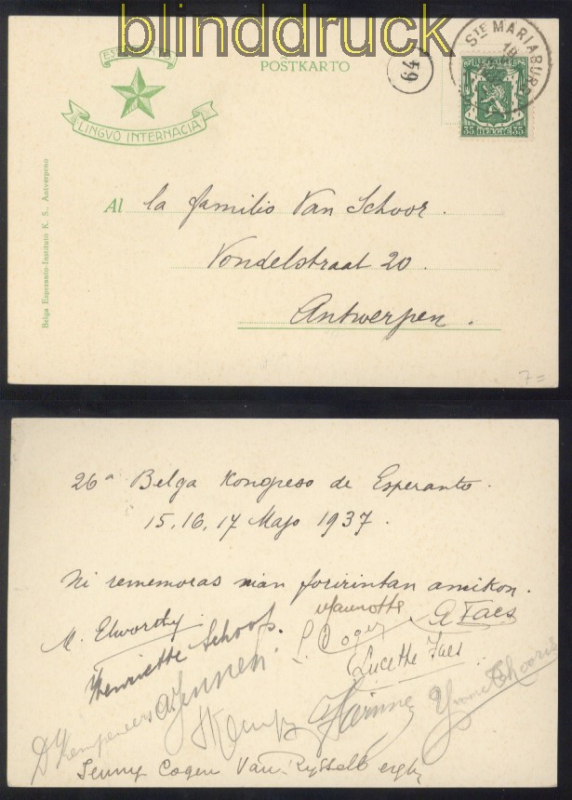 blinddruck
ESPERANTO
LINGVO INTERNACIA
POSTKARTO
49
STE MARIABURG
18
35 BELGIE 35
Belga Esperanto-Instituto K. S., Antverpeno
Al la familio Van Schoor.
Vondelstraat 20.
Antwerpen.
7=
26a Belga Kongreso de Esperanto.
15, 16, 17 Majo 1937.
Ni rememoras nian foririntan amikon.
M. Elworthy
Henriette Schoof.
Maurotte
Cogen
G Faes
Lucette Faes
D'Kempeneers A. Jennen.
Yvonne Thooris
Jenny Cogen Van Rysselberghe